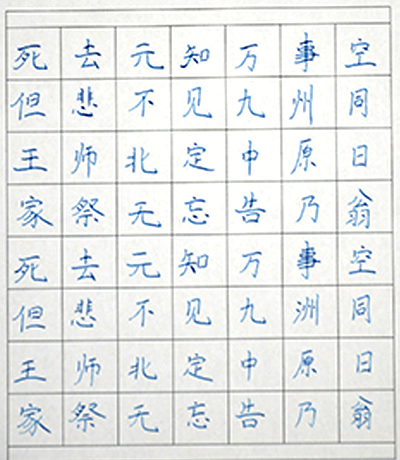 死去元知万事空
但悲不见九州同
王师北定中原日
家祭无忘告乃翁
死去元知万事空
但悲不见九洲同
王师北定中原日
家祭无忘告乃翁